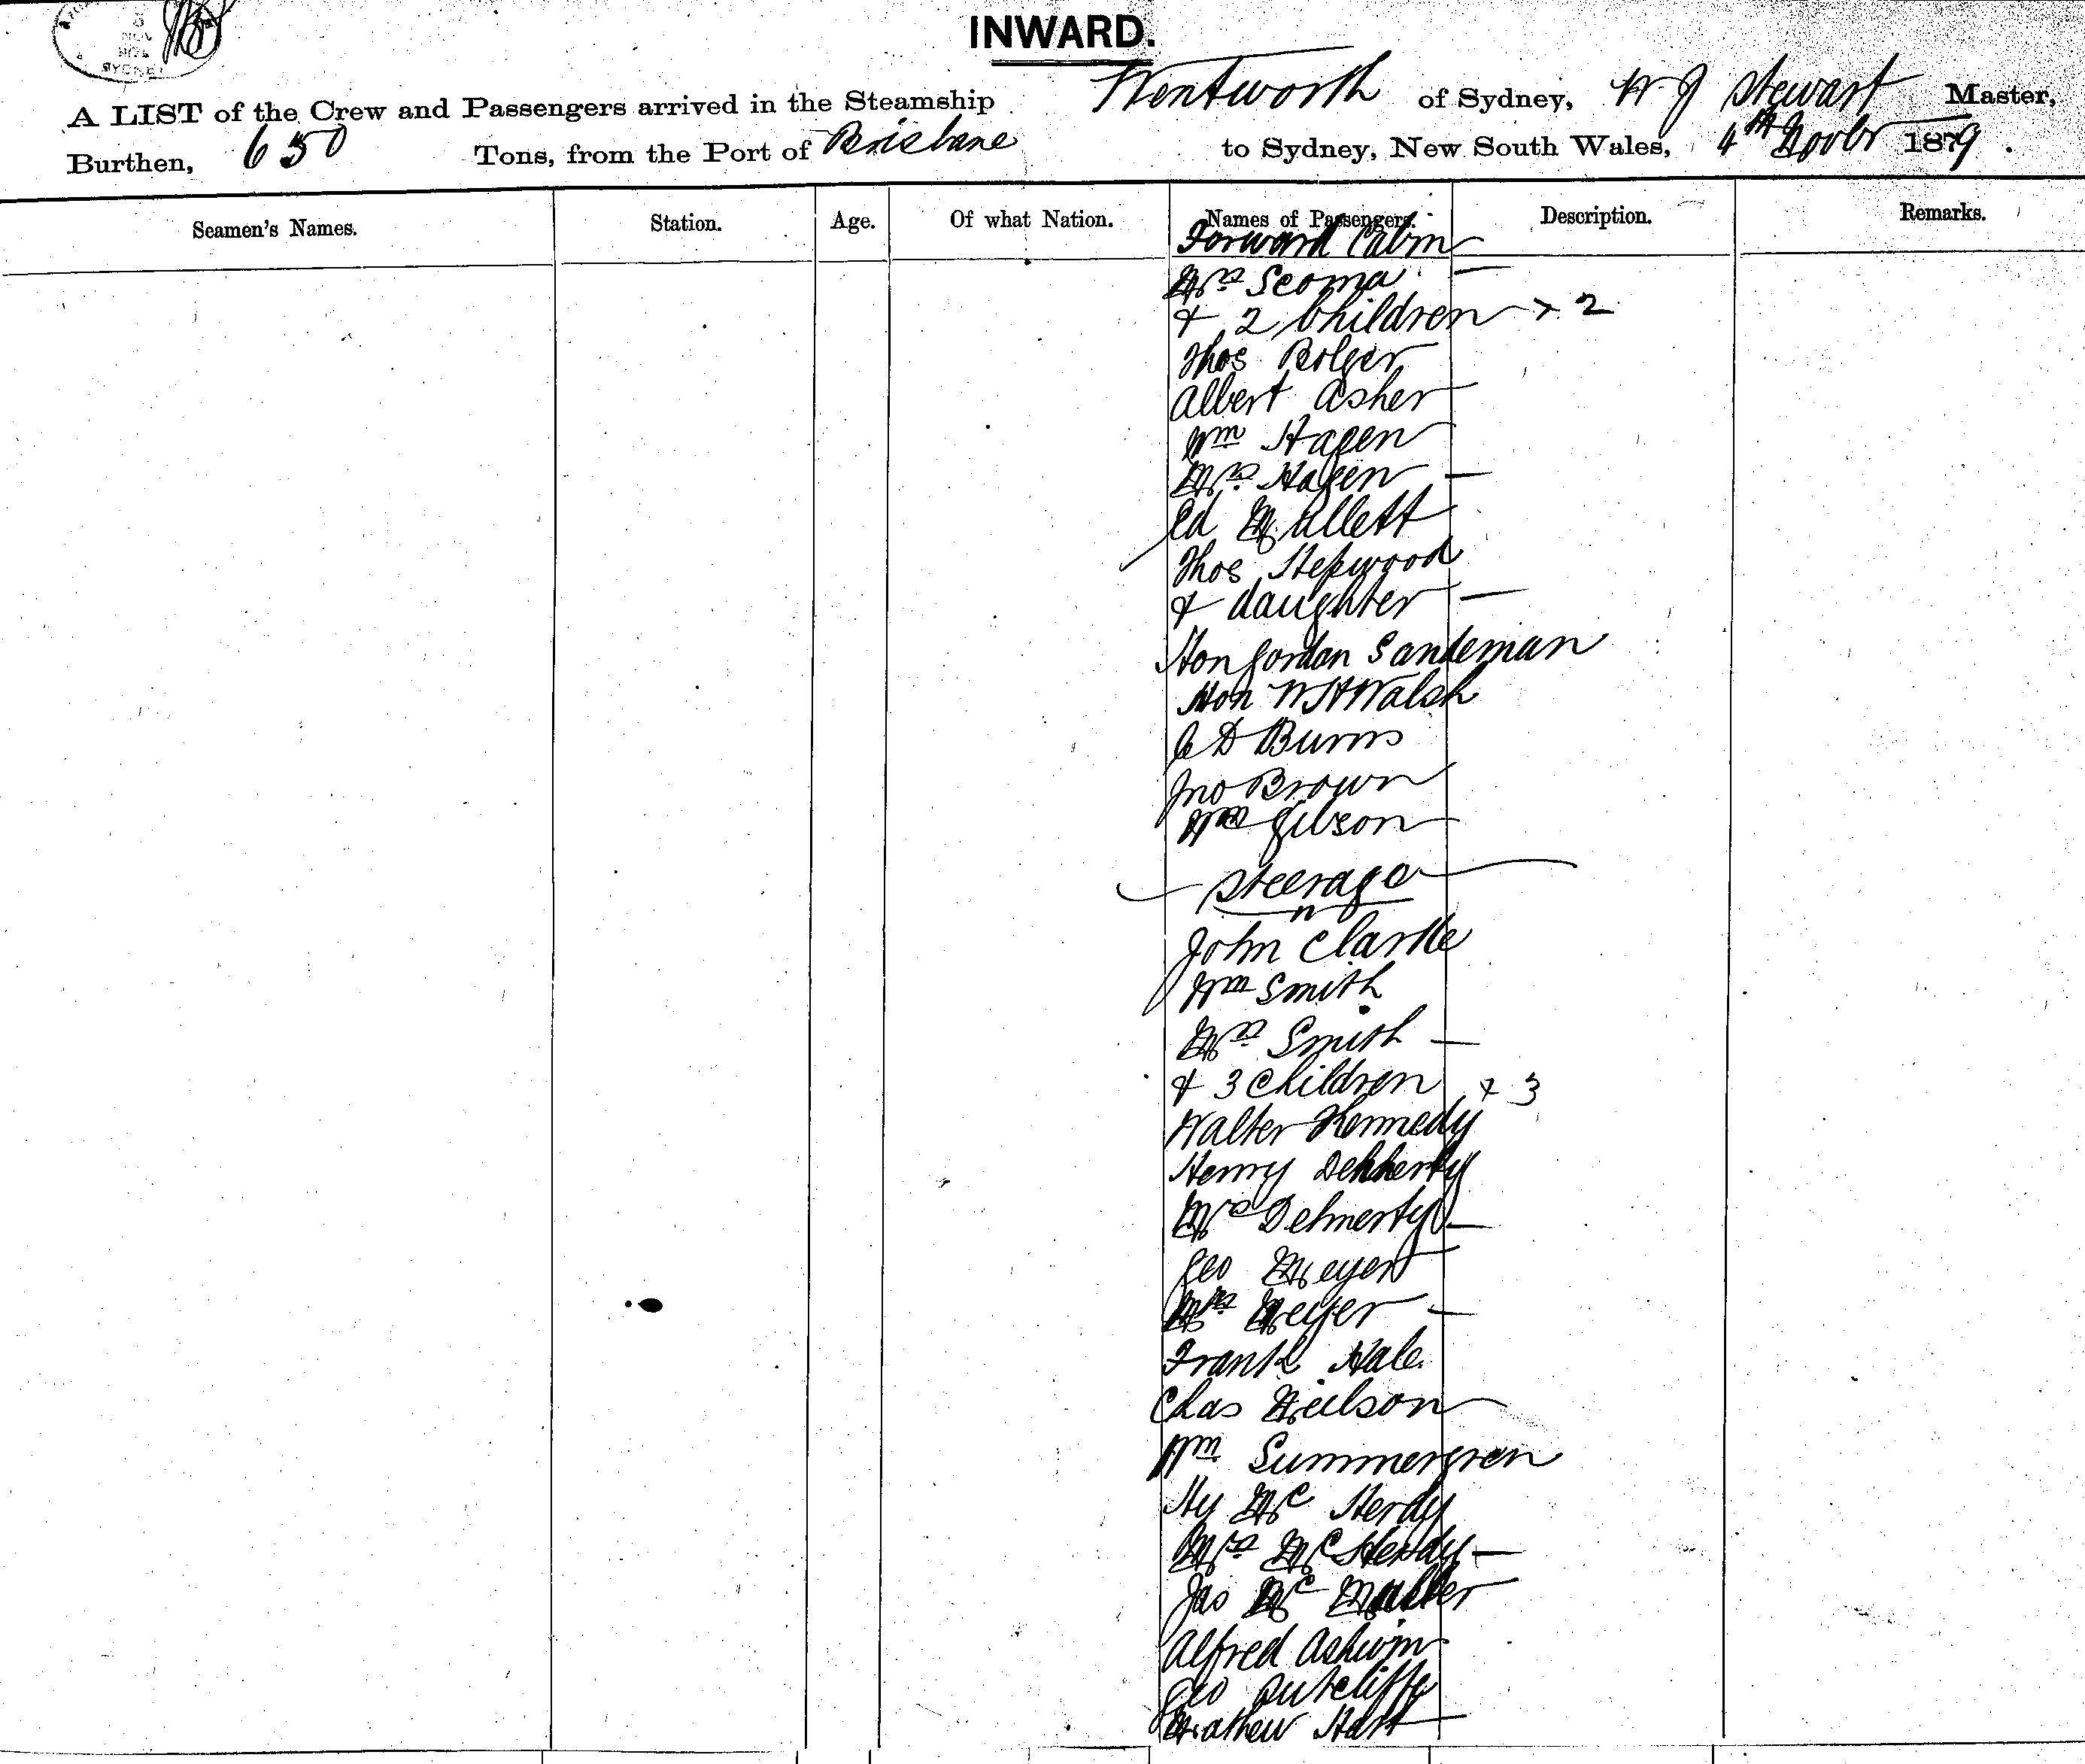 SYDNEY
INWARD.
A LIST of the Crew and Passengers arrived in the Steamship Wentworth of Sydney, W J Stewart Master,
Burthen, 650 Tons, from the Port of Brisbane to Sydney, New South Wales, 4th Novbr 1879.
Seamen's Names. Station. Age. Of what Nation. Names of Passengers. Description. Remarks.
Forward Cabin
Mrs Scoma —
& 2 Children + 2
Thos Bolger
Albert Asher
Wm Hagen
Mrs Hagen —
Ed Mullett
Thos Stepwood
& daughter —
Hon Gordon Sandeman
Hon W H Walsh
C D Burns
Jno Brown
Wm Gibson
Steerage
John Clarke
Wm Smith
Mrs Smith —
& 3 Children + 3
Walter Kennedy
Henry
Mrs Dehnerty —
Geo Meyer
Mrs Meyer —
Frank Hale
Chas Neilson
Wm Summergren
Hy Mc Herdy
Mrs McHerdy —
Jas Mc
Alfred Ashwin
Geo Sutcliffe
Mathew Hart